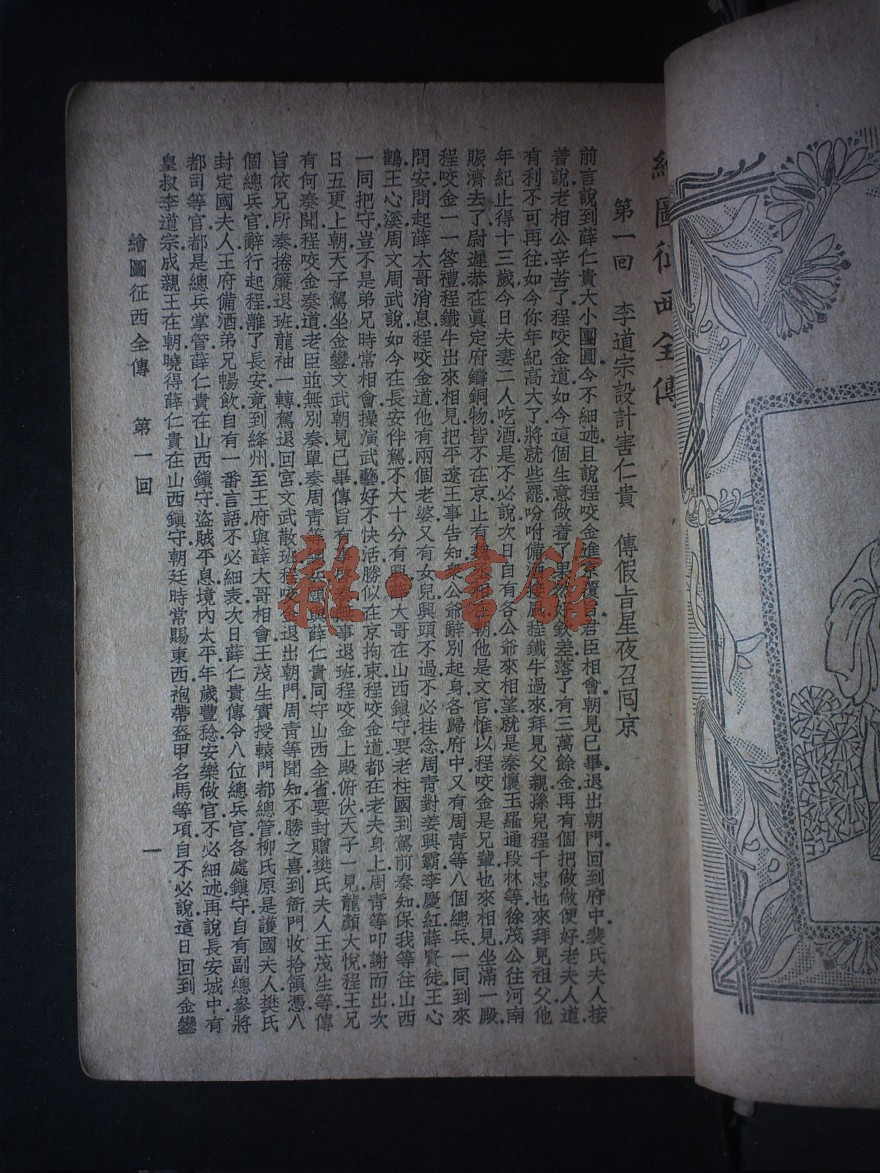 繪圖征西全傳
第一回　李道宗設計害仁貴　傳假旨星夜召回京
前言說到薛仁貴大小團圓今不細述且說程咬金進京覆旨君臣相會朝見已畢退出朝門回到府中裴氏夫人接
着說老相公辛苦了程咬金道如今這個生意做着了果然好欽差落了有三萬餘金再有個把做做便好老夫人道
有利不可再往如今你年紀高大了將就些罷吩咐備酒接風程鐵牛過來拜見父親孫兒程千忠也來拜見祖父他
年紀止得十三歲今日夫妻二人吃酒是不必說次日自有各公爺來相望就是秦懷玉羅通段林等徐茂公往河南
賑濟去了尉遲恭在眞定府鑄銅物皆不在京止有魏在朝他是文官惟以程咬金是兄號也來相見坐滿一殿
程咬金一一答禮程鐵牛出來相見把平遼王事告知衆公爺辭別起身各歸府中又有周青等八個總兵一同到來
問安問起薛大哥消息程咬金道他有兩個老婆又有女兒興頭不過不必挂念周青對姜興霸李慶紅薛賢徒王心
鶴王心溪周文周武說如今在長安伴駕不大十分有大哥在山西鎮守要老柱國到駕前奏知保我等往山西
一同把守豈不是弟兄時常相會操演武藝好不快活勝似在京拘束程咬金道都在老夫身上周青等叩謝而出次
日五更上朝天子駕坐金鑾文武朝見已畢傳旨有事無事退班程咬金上殿俯伏天子一見龍顏大悅程王兄
有何奏聞程咬金奏道老臣並無別奏單奏周青等總兵與薛仁貴同守山西全省要封贈樊氏夫人王茂生等傳
旨依兄所奏捲簾退班龍袖一轉駕退回宮文武散班程咬金退出朝門周青等聞知不勝之喜到衙門收拾領憑八
個總兵官辭行起程離了長安竟到絳州至王府與薛大哥相會王茂生實授轅門都總管柳氏原是護國夫人樊氏
封定國夫人王府備酒弟兄暢飲自有一番言語不必細表次日薛仁貴傳令八位總兵官各處鎮守自有副總參將
都司等官都是總兵掌管薛仁貴在山西鎮守盜賊平息境內太平年歲豐稔安樂做官不必細述再說長安城中有
皇叔李道宗成親王在朝曉得薛仁貴在山西鎮守朝廷時常賜東西袍帶盔甲名馬等項自不必說這日回到金鑾
繪圖征西全傳　第一回
一
雜·書館